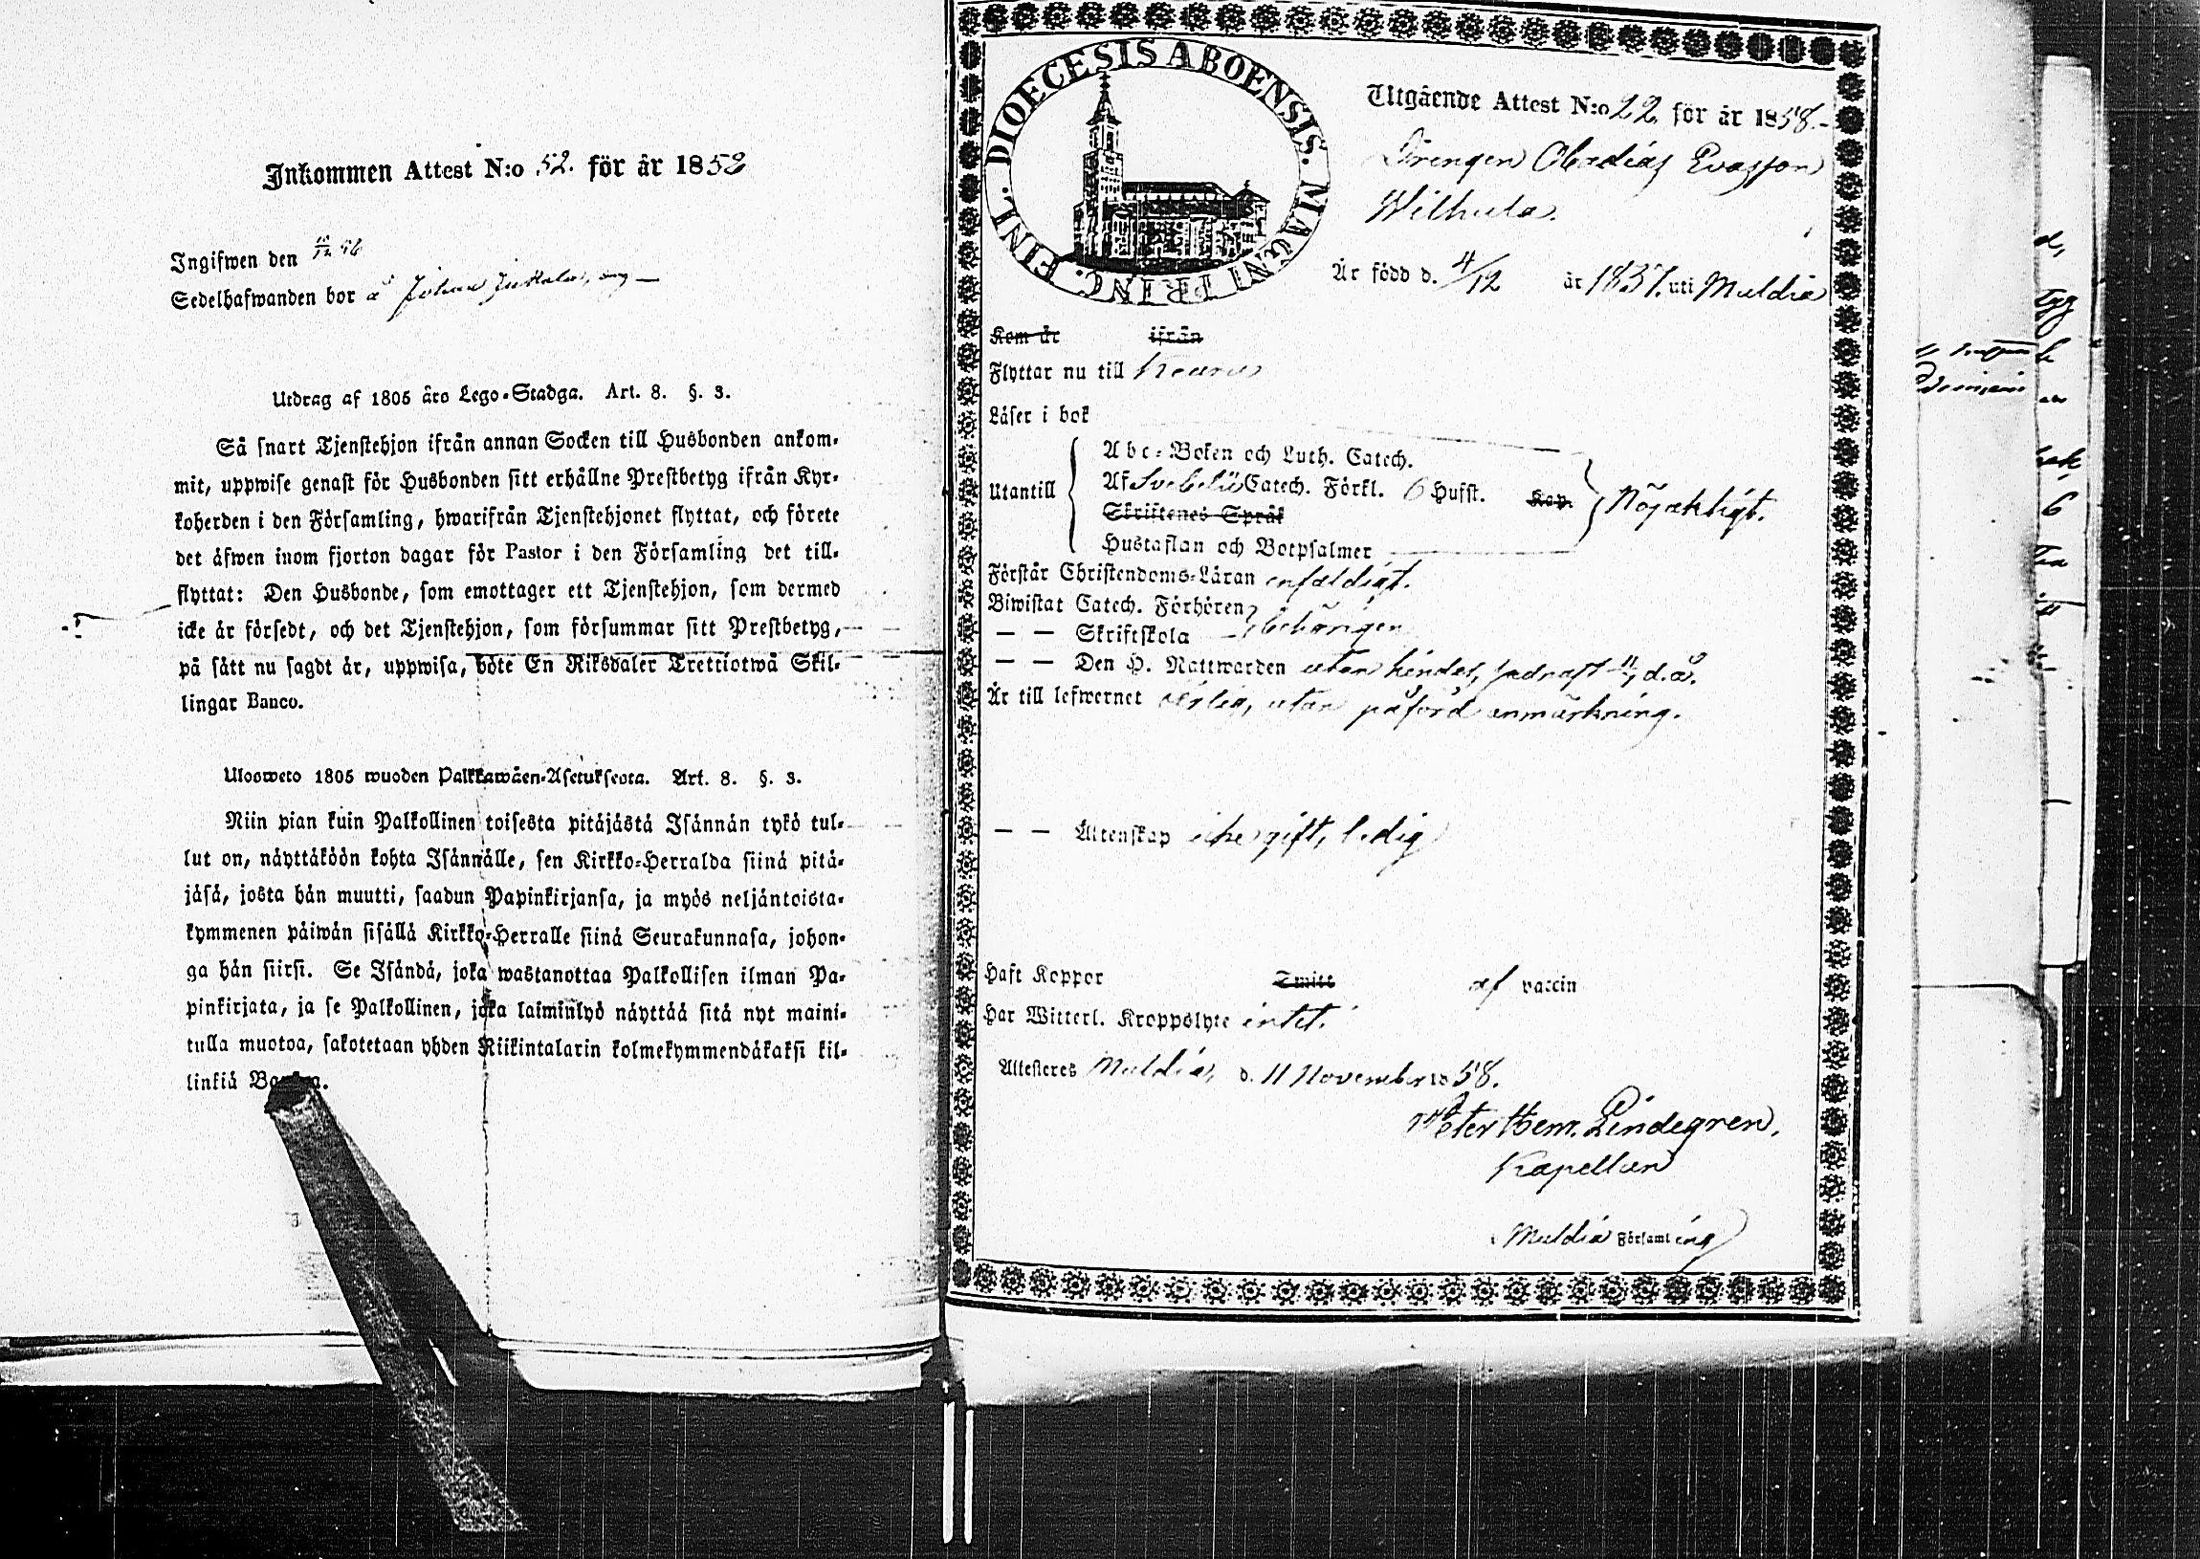 Inkommen Attest N:o 52. för år 185
Ingifwen den
Sedelhafwanden bor å Johan
Utdrag af 1805 års Lego-Stadga. Art. 8. §. 3.
Så snart Tjenstehjon ifrån annan Socken till Husbonden ankom-
mit, uppwise genast för Husbonden sitt erhållne Prestbetyg ifrån Kyr-
koherden i den Församling, hwarifrån Tjenstehjonet flyttat, och förete
det äfwen inom fjorton dagar för Pastor i den Församling det till-
flyttat: Den Husbonde, som emottager ett Tjenstehjon, som dermed
icke är försedt, och det Tjenstehjon, som försummar sitt Prestbetyg,
på sätt nu sagdt är, uppwisa, böte En Riksdaler Trettiotwå Skil-
lingar Banco.
Ulosweto 1805 wuoden Palkkawäen-Asetuksesta. Art. 8. §. 3.
Niin pian kuin Palkollinen toisesta pitäjästä Isännän tykö tul-
lut on, näyttäköön kohta Isännälle, sen Kirkko-Herralda siinä pitä-
jäsä, josta hän muutti, saadun Papinkirjansa, ja myös neljäntoista-
kymmenen päiwän sisällä Kirkko-Herralle siinä Seurakunnasa, johon-
ga hän siirsi. Se Isändä, joka wastanottaa Palkollisen ilman Pa-
pinkirjata, ja se Palkollinen, joka laiminlyö näyttää sitä nyt maini-
tulla muotoa, sakotetaan yhden Riikintalarin kolmekymmendäkaksi kil-
linkiä
DIOECESIS ABOENSIS. MAGNI PRINC. FINL.
Utgående Attest N:o 22. för år 1858.
Drengen Obadias Evasson
Wilhula.
Är född d. 4/12 år 1837. uti Muldia
Kom år ifrån
Flyttar nu till Keuru
Läser i bok
Abc-Boken och Luth. Catech.
Utantill Af Svebelii Catech. Förkl. 6 Hufst. Kap. Nöjaktigt.
Skriftenes Språk
Hustaflan och Botpsalmer
Förstår Christendoms-Läran enfaldigt.
Biwistat Catech. Förhören behörigen
— — Skriftskola
— — Den H. Nattwarden utan hinder, d.å.
Är till lefwernet ärlig, utan påförd anmärkning.
— — Äktenskap icke gift, ledig
Haft Koppor Smitt af vaccin
Har Witterl. Kroppslyte intet.
Attesteres Muldia, d. 11 November 1858.
Peter Hem. Lindegren,
Kapellan
Muldia Församling